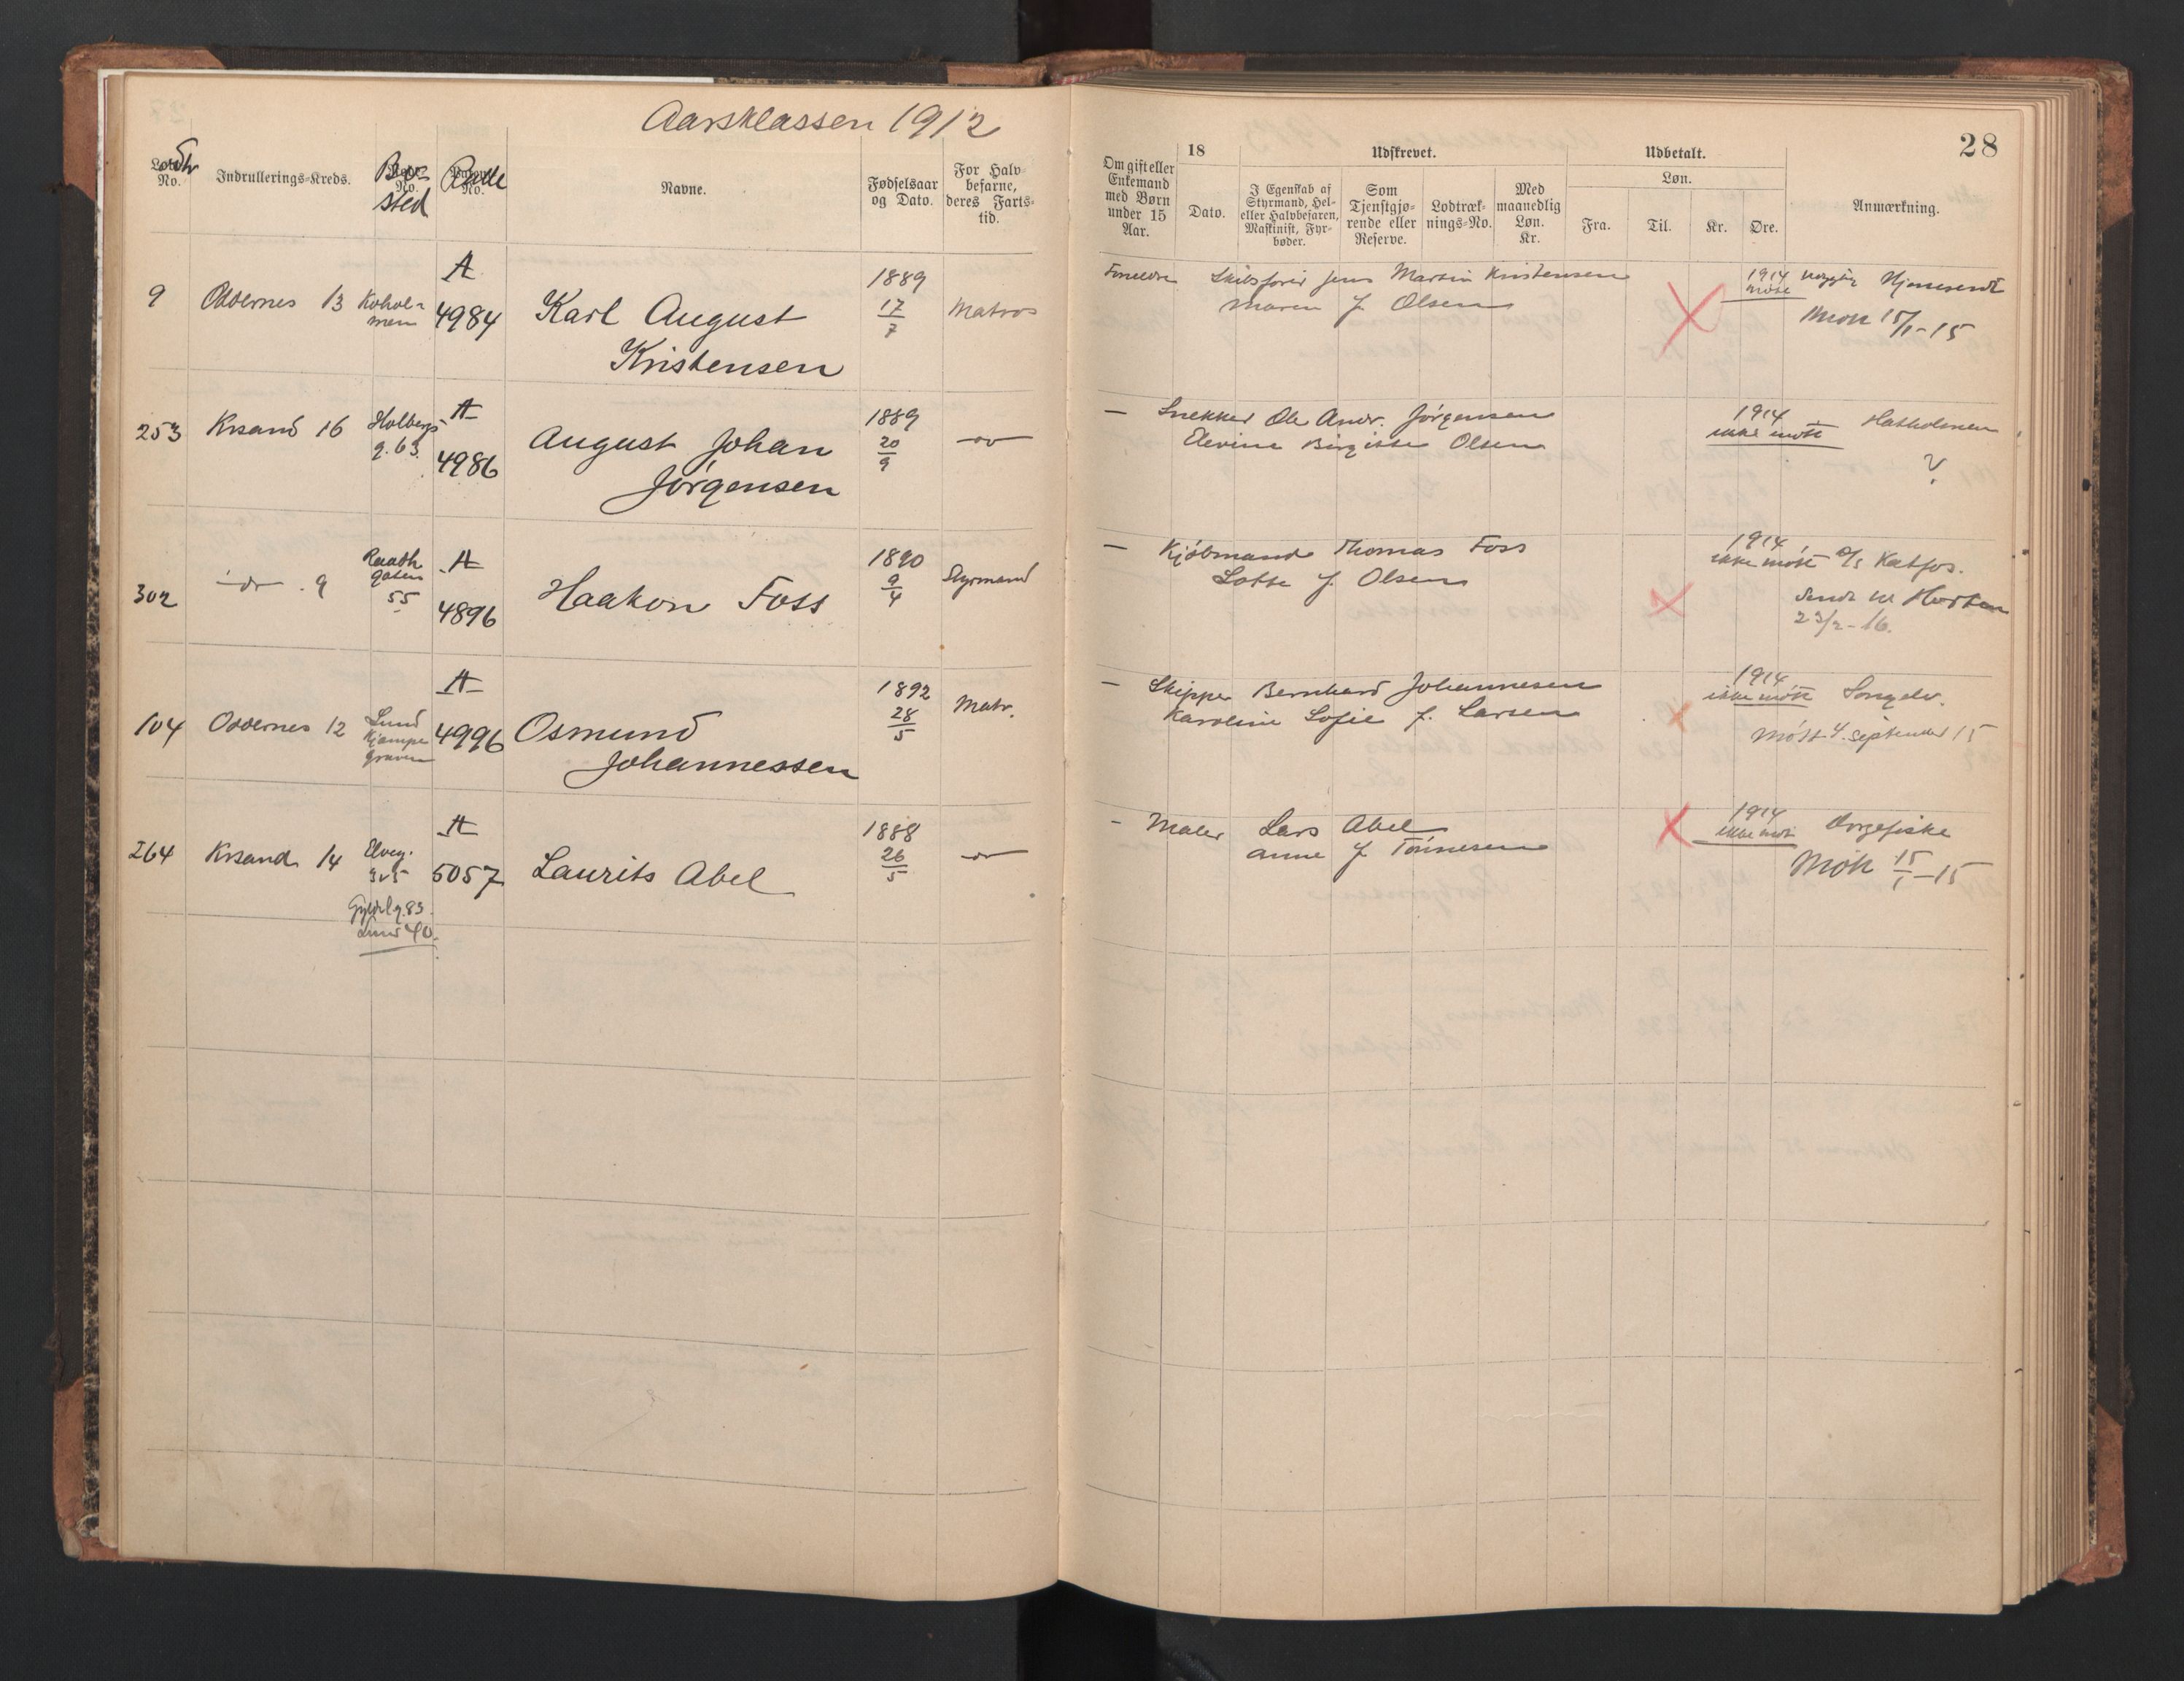 Aarsklassen 1912
28
Lodtr No.
Indrullerings-Kreds.
Bo-
sted
Rulle
No.
Navne.
Fødselsaar
og Dato.
For Halv-
befarne,
deres Farts-
tid.
Om gift eller
Enkemand
med Børn
under 15
Aar.
18
Dato.
Udskrevet.
I Egenskab af
Styrmand, Hel-
eller Halvbefaren,
Maskinist, Fyr-
bøder.
Som
Tjenstgjø-
rende eller
Reserve.
Lodtræk-
nings-No.
Med
maanedlig
Løn.
Kr.
Udbetalt.
Løn.
Fra.
Til.
Kr.
Øre.
Anmærkning.
9 Oddernes 13 Kohol-
men
A
4984
Karl August
Kristensen
1889
17
7
Matros
Forældre Skibsfører Jens Martin Kristensen
Maren f. Olsen
1914
Hjemsendt
15/1-15
253 Krsand 16 Holbergs
g. 63.
A
4986
August Johan
Jørgensen
1889
20
9
-"-
— Snekker Ole Andr. Jørgensen
Elevine Birgitte Olsen
1914
ikke møtt
?
302 -do- 9 Raadh
gaten
55
A
4896
Haakon Foss
1890
9
4
Styrmand
— Kjøbmand Thomas Foss
Lotte f. Olsen
1914
ikke møtt D/S Katfos.
Sendt til Horten
23/2-16.
104 Oddernes 12 Lund
Kjæmpe
graven
A
4996
Osmund
Johannessen
1892
28
5
Matr.
— Skipper Bernhard Johannesen
Karoline Sofie f. Larsen
1914
ikke møtt Songelv.
Møtt 4. september 15
264 Krsand 14 Elveg.
A
5057
Laurits Abel
1888
26
5
-"-
— Maler Lars Abel
Anne f. Tønnesen
1914
ikke møtt
Møtt 15/1-15
Lund 40.